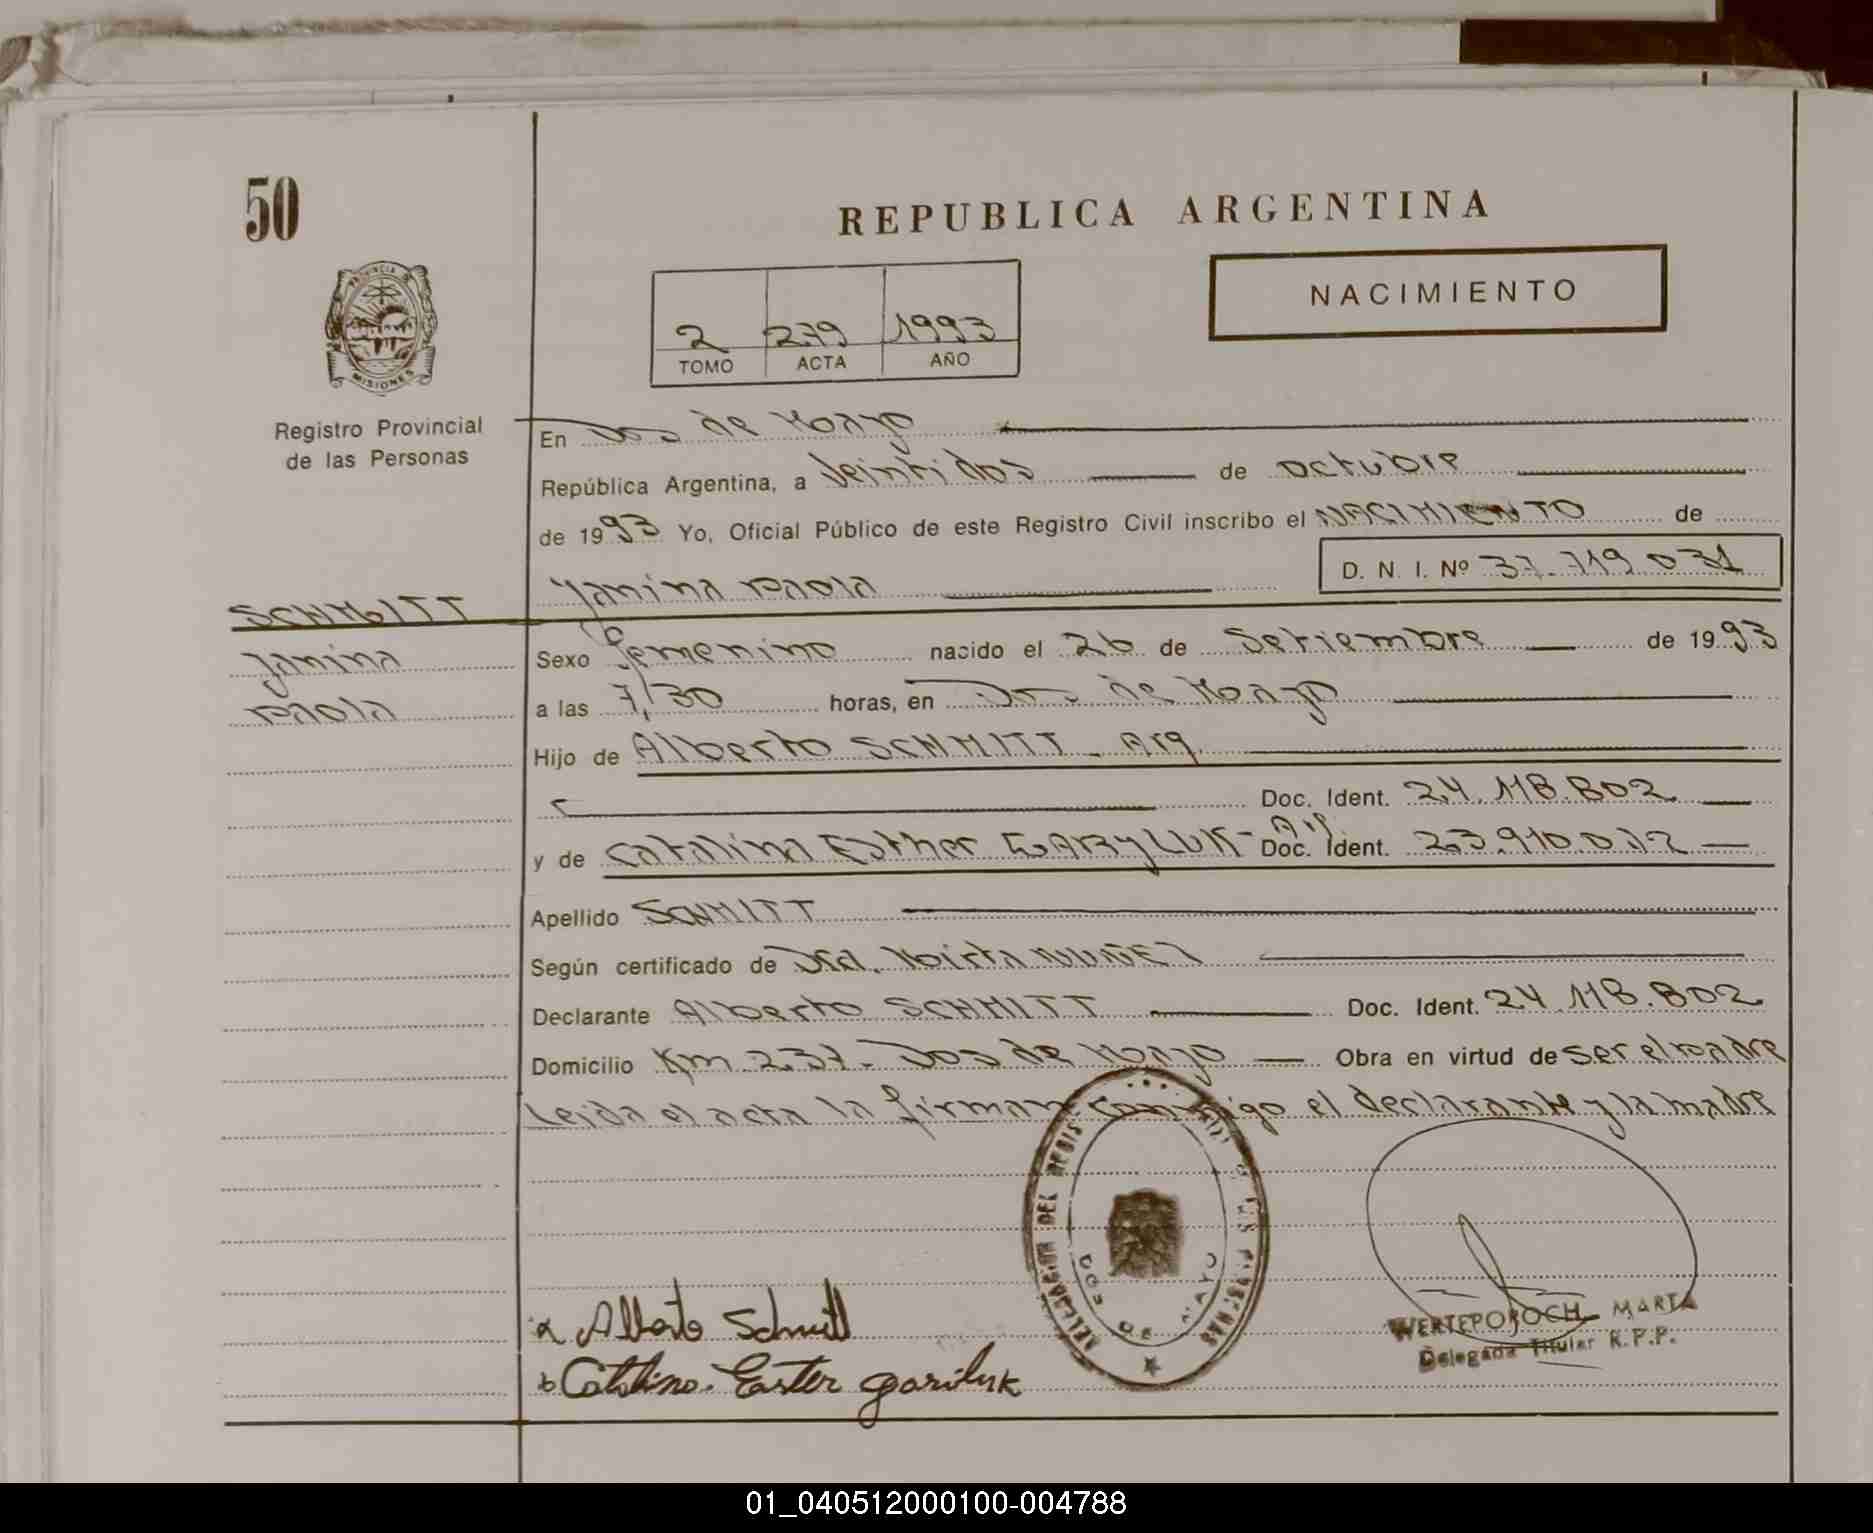 50
REPUBLICA ARGENTINA
NACIMIENTO
PROVINCIA DE
MISIONES
2 279 1993
TOMO ACTA AÑO
Registro Provincial
de las Personas
En Dos de Mayo
República Argentina, a Veintidos de octubre
de 1993 Yo, Oficial Público de este Registro Civil inscribo el NACIMIENTO de
Yanina Paola D. N. I. Nº 37.719.031
SCHMITT
Yanina
Paola
Sexo Femenino nacido el 26 de Setiembre de 1993
a las 7,30 horas, en Dos de Mayo
Hijo de Alberto SCHMITT - Arg.
Doc. Ident. 24.118.802
y de Catalina Esther GARYLUK - Arg. Doc. Ident. 23.910.012
Apellido SCHMITT
Según certificado de Dra. Mirta NUÑEZ
Declarante Alberto SCHMITT Doc. Ident. 24.118.802
Domicilio Km. 237 - Dos de Mayo Obra en virtud de ser el padre
Leida el acta la firman conmigo el declarante y la madre
DELEGACION DEL REGIS DE LAS PERSONAS
DOS DE MAYO
a Alberto Schmitt
b Catalina Ester Gariluk
WERTEPOROCH MARTA
Delegada Titular R.P.P.
01_040512000100-004788